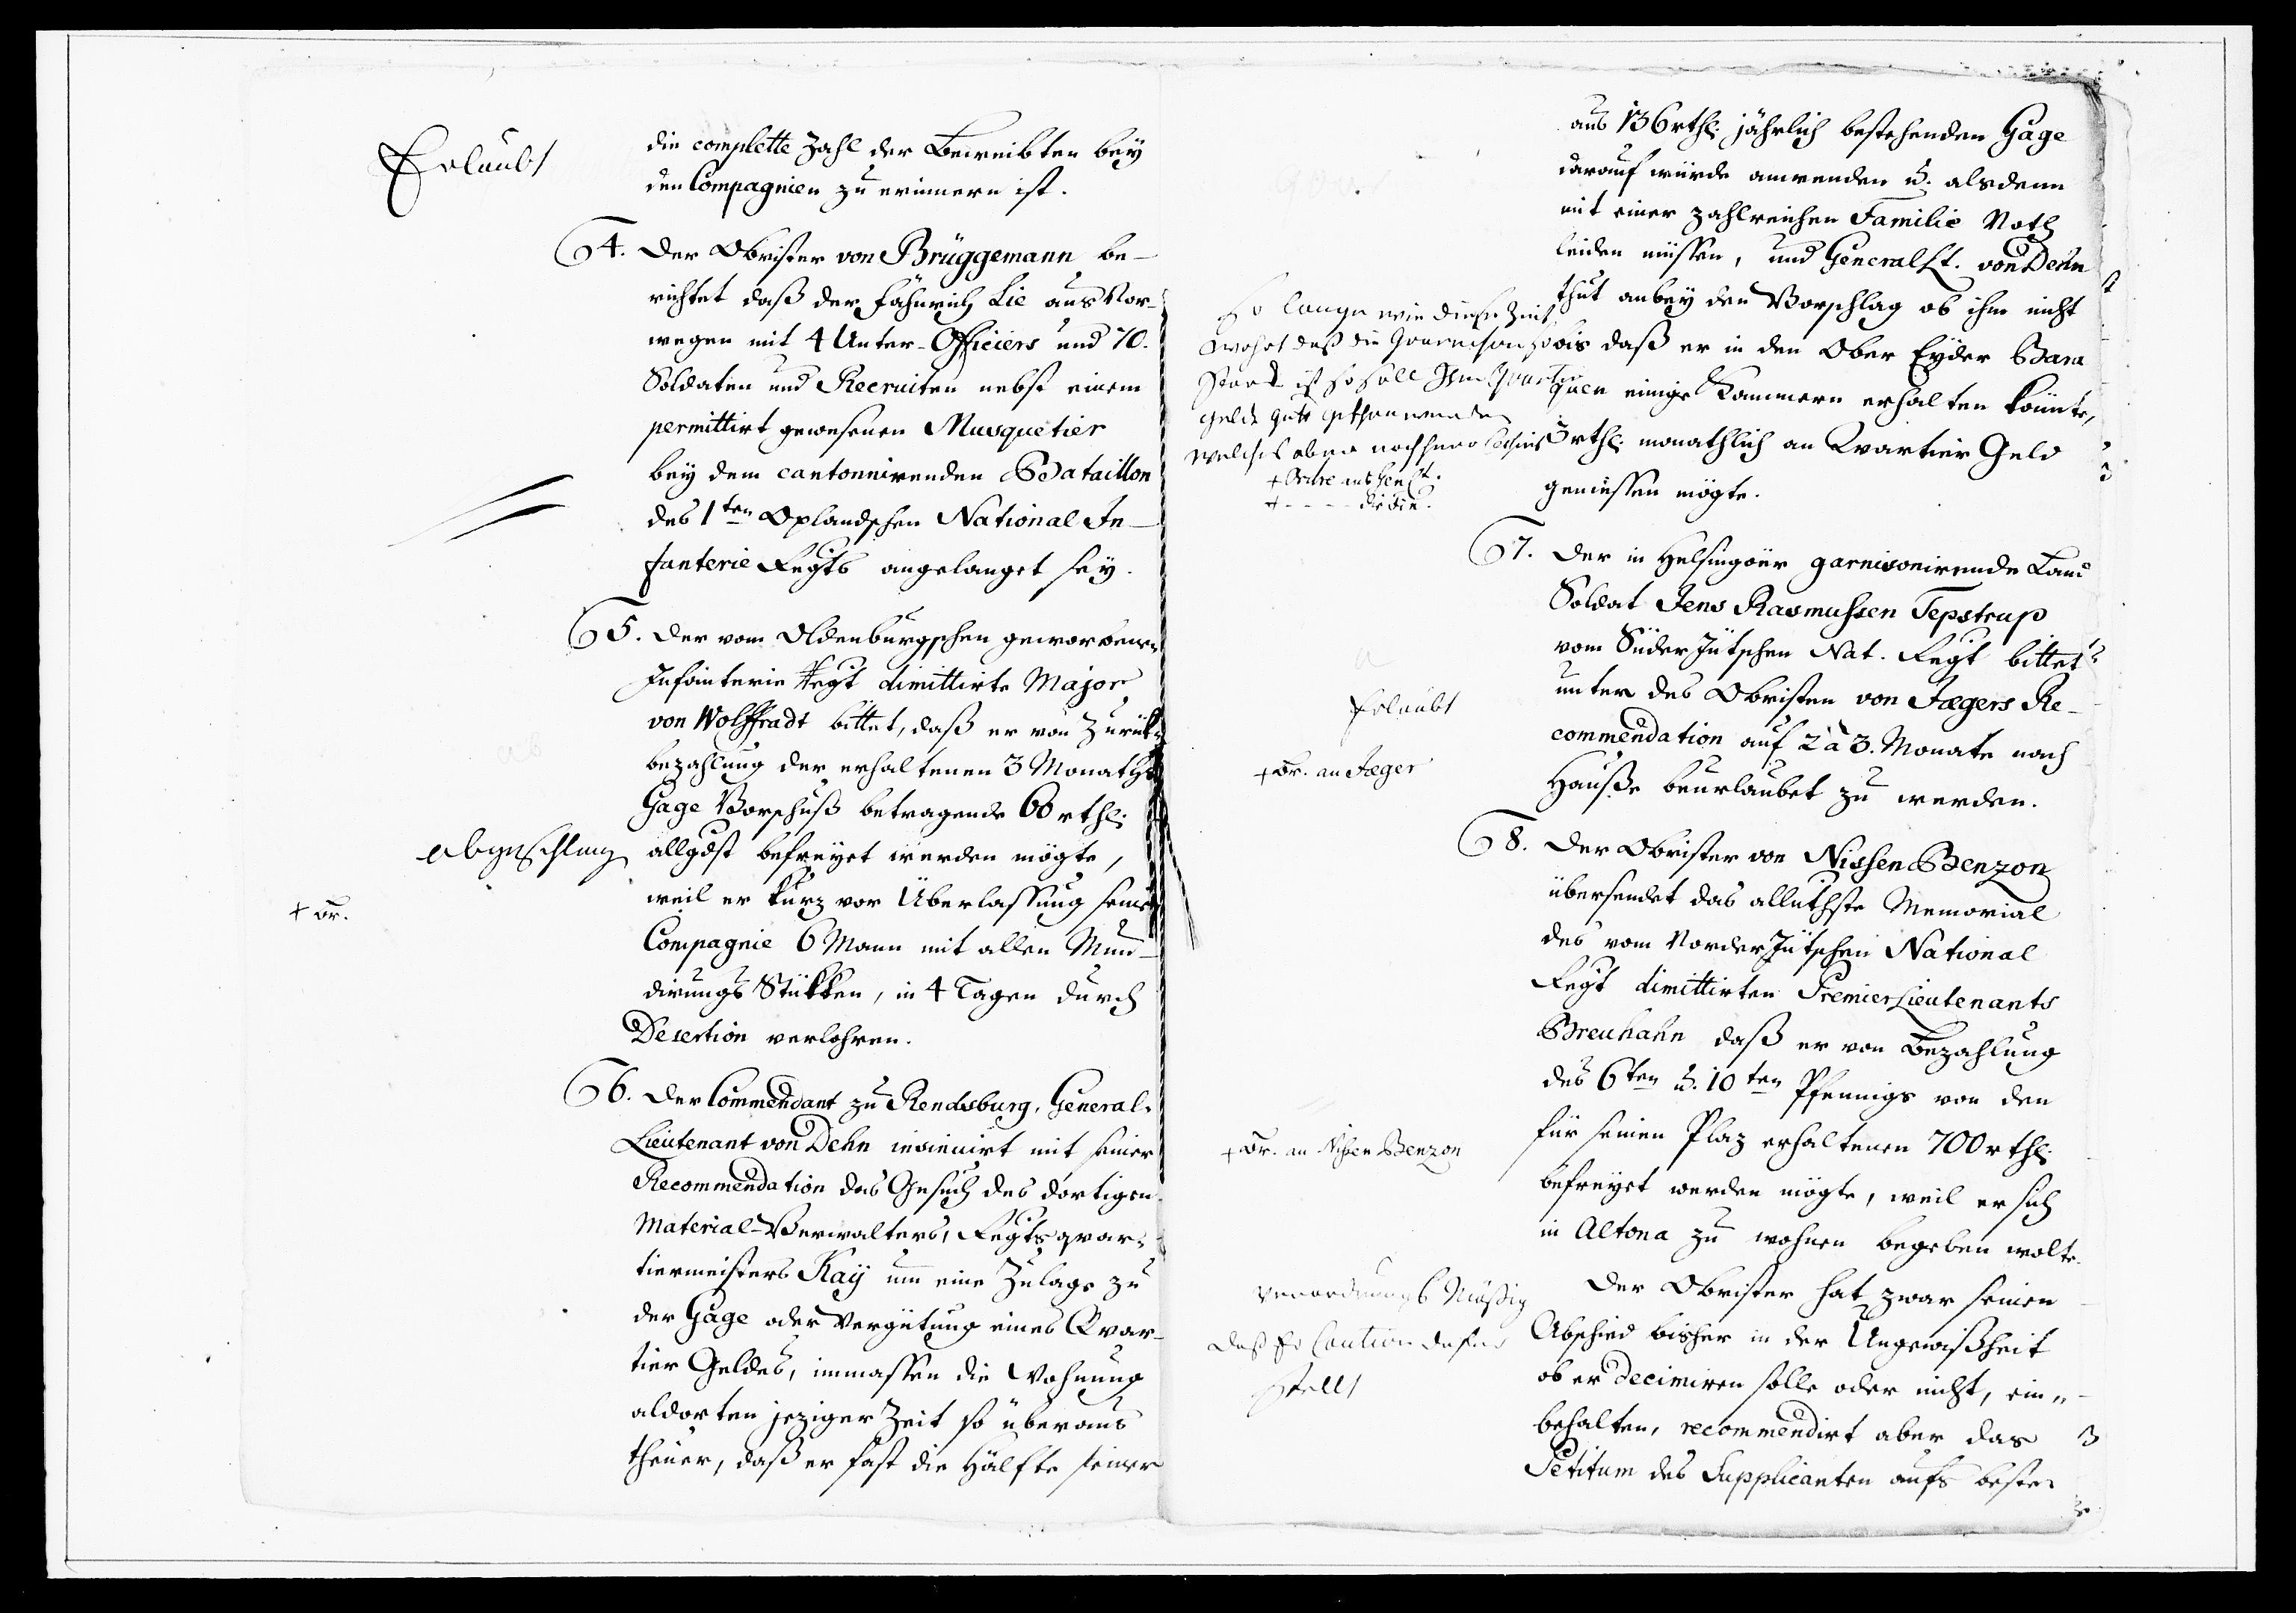 Erlaubt
die complette Zahl der Beweibten bey
den Compagnien zu erinnern ist.
4. Der Obrister von Brüggemann be-
richtet daß der Fähnrich Lie aus Nor-
wegen mit 4 Unter-Officiers und 70.
Soldaten und Recruiten nebst einem
permittirt gewesenen Musquetier
bey dem cantonnirenden Bataillon
des 1ten Oplandschen National In-
fanterie Regts angelanget sey.
5. Der vom Oldenburgschen geworbenen
Infanterie Regt dimittirte Major
von Wolffradt bittet, daß er von Zurük-
bezahlung der erhaltenen 3 Monaths
Gage Vorschuß betragende 60 rthl.
allgdst befreyet werden mögte,
weil er kurz vor Überlassung seiner
Compagnie 6 Mann mit allen Mun-
dirungs Stükken, in 4 Tagen durch
Desertion verlohren.
abgeschlag
+ Or.
6. Der Commendant zu Rendsburg, General-
Lieutenant von Dehn insinuirt mit seiner
Recommendation das Gesuch des dortigen
Material-Verwalters, Regts qvar-
tiermeisters Kaÿ um eine Zulage zu
der Gage oder Vergütung eines Qvar-
tier Geldes, immassen die Wohnung
aldorten jeziger Zeit so überaus
theuer, daß er fast die Hälfte seiner
aus 136 rthl. jährlich bestehenden Gage
darauf würde anwenden u. alsdenn
mit einer zahlreichen Familie Noth
leiden müssen, und General Lt. von Dehn
thut anbey den Vorschlag ob ihm nicht
bis daß er in den Ober Eyder Bara
quen einige Kammern erhalten könnte,
3 rthl. monathlich an Qvartier Geld
geniessen mögte.
so lange wie diese Zeit
wehrt daß die Guarnison so
starck ist so soll Ihm Quartier
geld gut gethan werden
welches aber nachhero
+ Ordre an Gen Lt.
+ - - - -
7. Der in Helsingöer garnisonirende Land
Soldat Jens Rasmussen Tepstrup
vom Süder Jütschen Nat. Regt bittet
unter des Obristen von Jægers Re-
commendation auf 2 à 3. Monate nach
Hause beurlaubet zu werden.
Erlaubt
+ Or. an Jæger
8. Der Obrister von Nissen Benzon
übersendet das allutste Memorial
des vom Norder Jütschen National
Regt dimittirten Premier Lieutenants
Breuhahn daß er von Bezahlung
des 6ten u. 10ten Pfennigs von den
für seinen Plaz erhaltenen 700 rthl.
befreyet werden mögte, weil er sich
in Altona zu wohnen begeben wolte.
+ Or. an Nissen Benzon
Der Obrister hat zwar seinen
Abschied bisher in der Ungewißheit
ob er decimiren solle oder nicht, ein-
behalten, recommendirt aber das
Petitum des Supplicanten aufs beste.
verordnungs Mäßig
daß Er Caution dafür
stellt